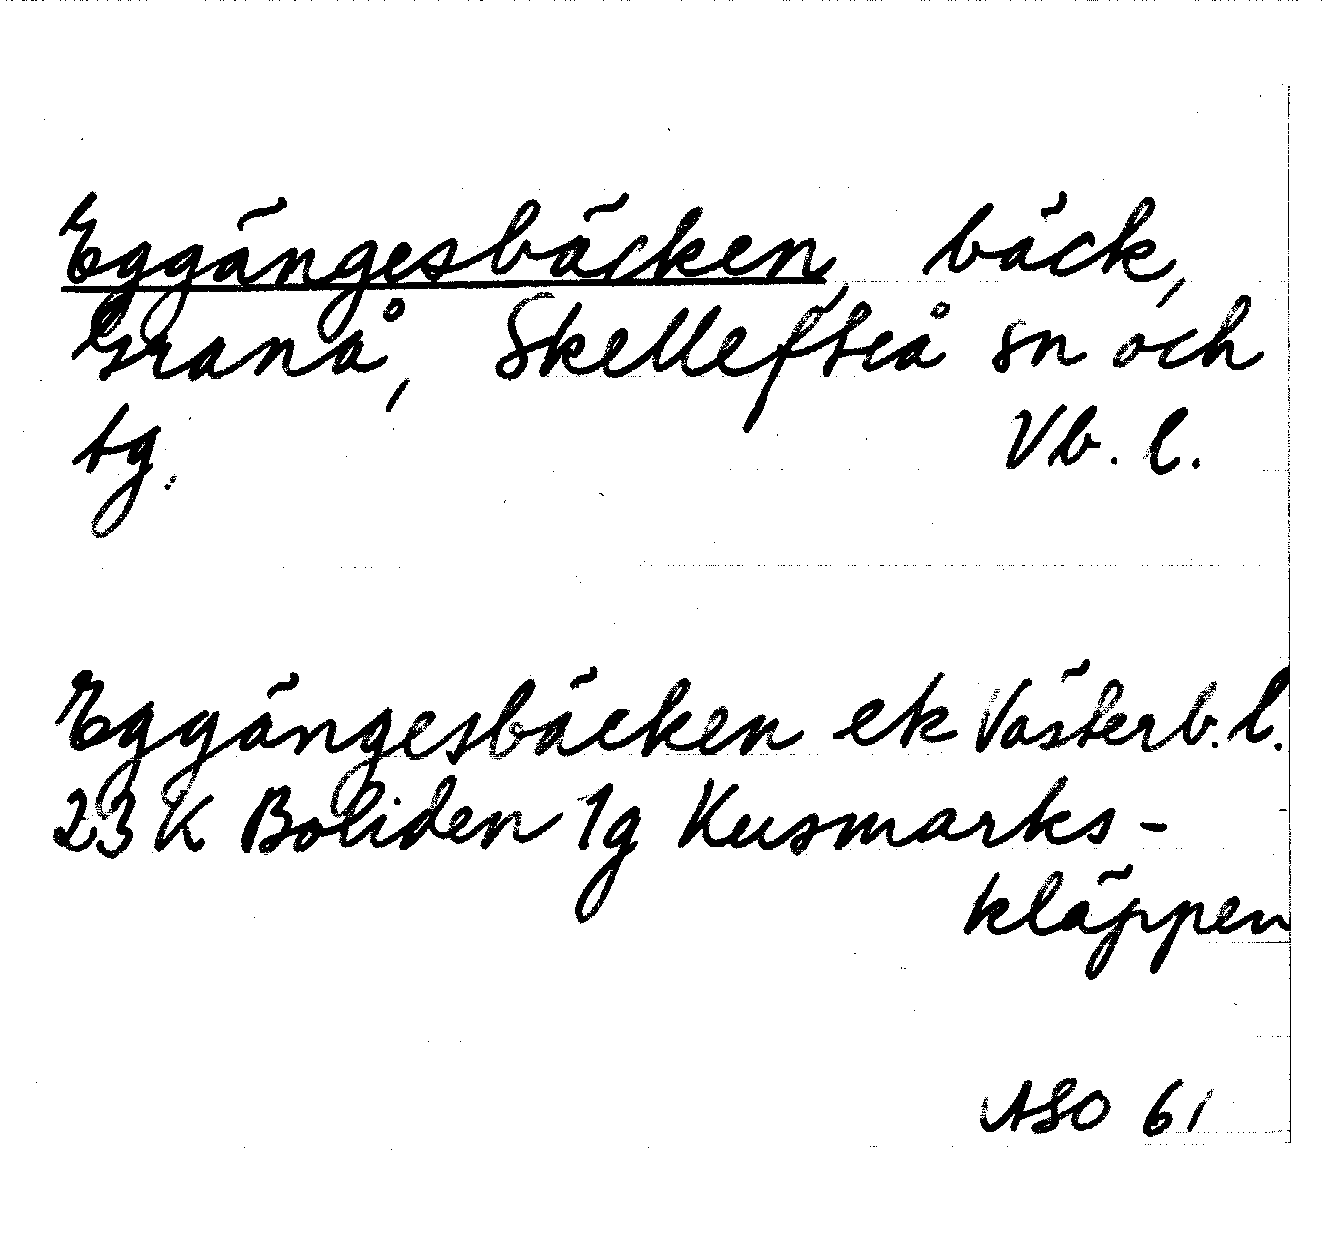 Eggängesbäcken, bäck,
Granå, Skellefteå sn och
tg. Vb. l.
Eggängesbäcken ek Västerb. l.
23 K Boliden 1g Kusmarks-
kläppen
ASO 61